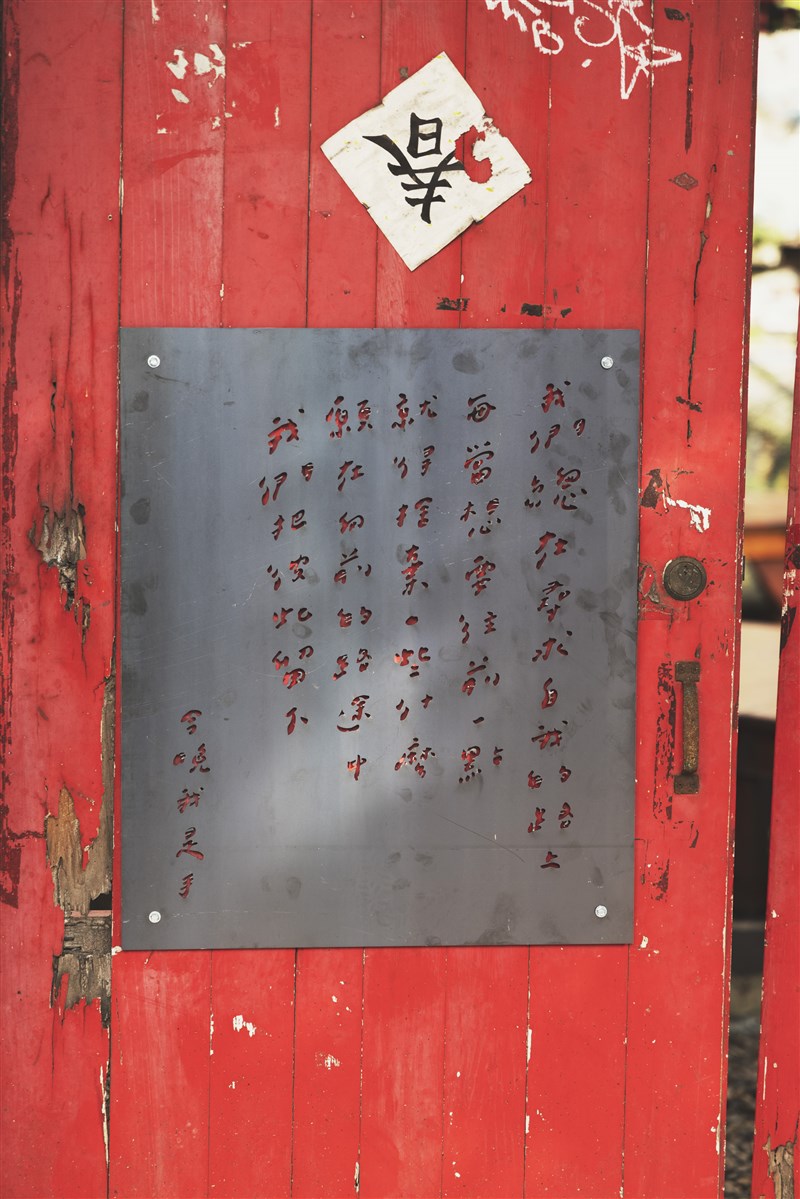 春
我們總在尋求自我的路上
每當想要往前一點
就得捨棄一些什麼
願在向前的路途中
我們把彼此留下
今晚我是手